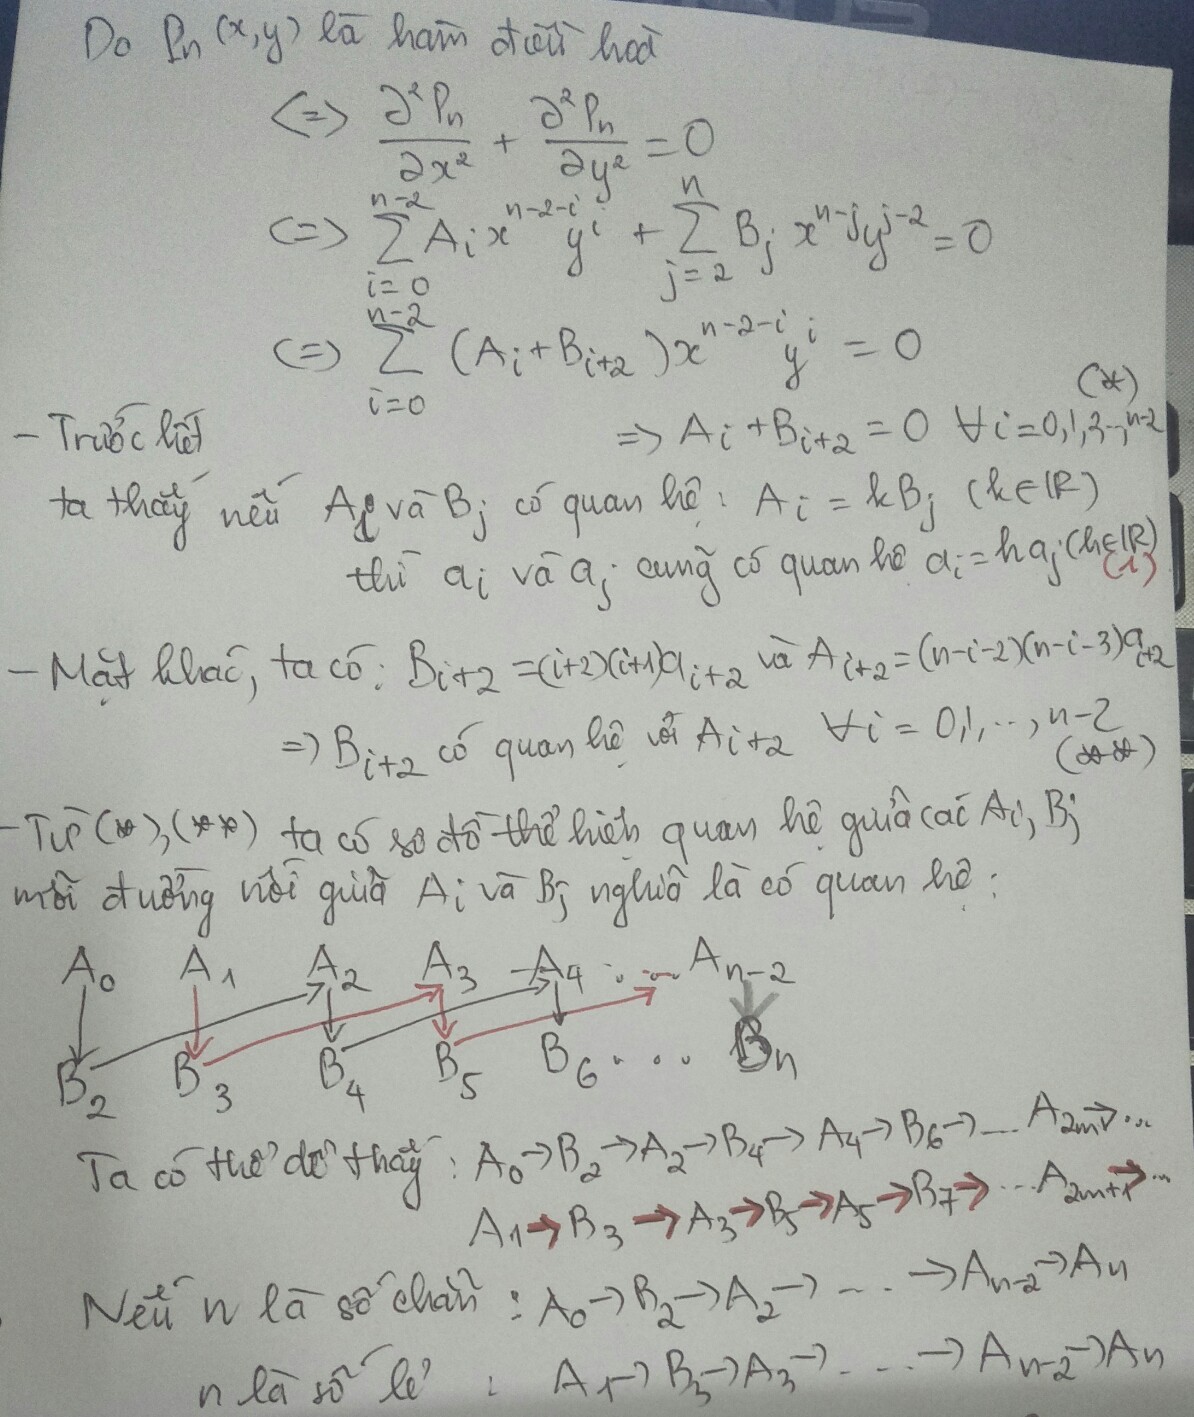 Do Pn(x,y) là hàm điều hoà
<=> ∂²Pn/∂x² + ∂²Pn/∂y² = 0
<=> ∑_{i=0}^{n-2} A_i x^{n-2-i} y^i + ∑_{j=2}^{n} B_j x^{n-j} y^{j-2} = 0
<=> ∑_{i=0}^{n-2} (A_i + B_{i+2}) x^{n-2-i} y^i = 0
- Trước hết => A_i + B_{i+2} = 0 ∀i = 0,1,2..,n-2 (*)
ta thấy nếu A_i và B_j có quan hệ : A_i = kB_j (k∈ℝ)
thì a_i và a_j cũng có quan hệ a_i = h a_j (h∈ℝ) (1)
- Mặt khác, ta có: B_{i+2} = (i+2)(i+1)a_{i+2} và A_{i+2} = (n-i-2)(n-i-3)a_{i+2}
=> B_{i+2} có quan hệ với A_{i+2} ∀i = 0,1,..., n-2 (**)
- Từ (*),(**) ta có sơ đồ thể hiện quan hệ giữa các A_i, B_j
mỗi đường nối giữa A_i và B_j nghĩa là có quan hệ :
A_0 A_1 A_2 A_3 A_4 ... A_{n-2}
B_2 B_3 B_4 B_5 B_6 ... B_n
Ta có thể dễ thấy : A_0 → B_2 → A_2 → B_4 → A_4 → B_6 → ... A_{2m} → ...
A_1 → B_3 → A_3 → B_5 → A_5 → B_7 → ... A_{2m+1} → ...
Nếu n là số chẵn : A_0 → B_2 → A_2 → ... → A_{n-2} → A_n
n là số lẻ : A_1 → B_3 → A_3 → ... → A_{n-2} → A_n